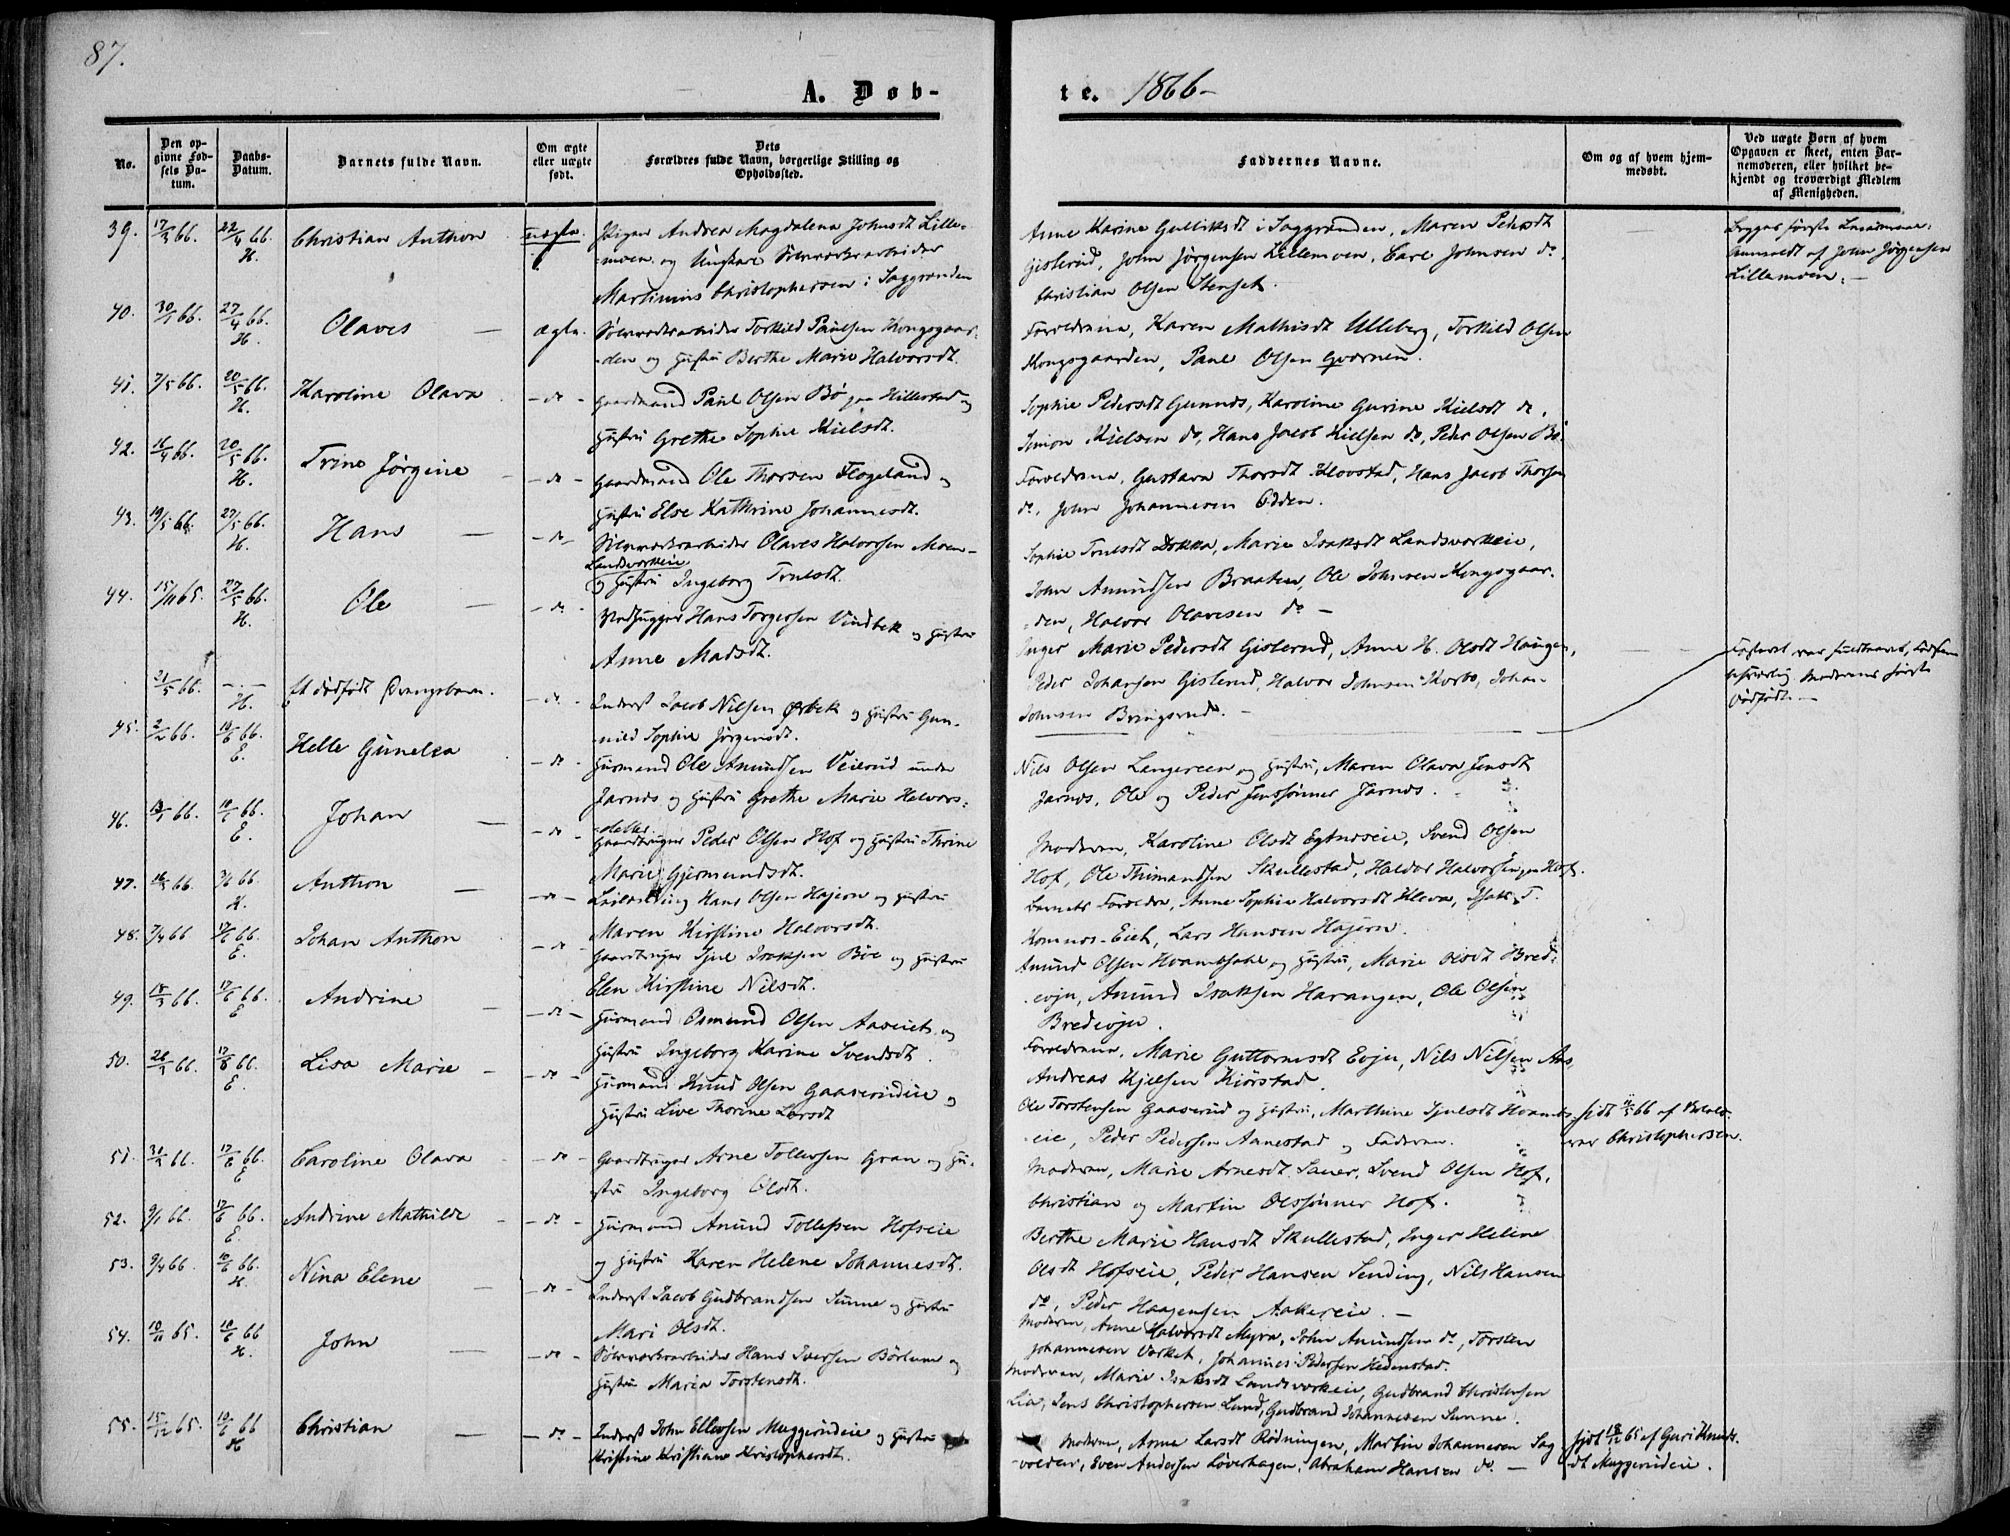 87.
A. Døb-
te. 1866-
No.
Den op-
givne Fød-
sels Da-
tum.
Daabs-
Datum.
Barnets fulde Navn.
Om ægte
eller uægte
født.
Dets
Forældres fulde Navn, borgerlige Stilling og
Opholdssted.
Faddernes Navne.
Om og af hvem hjem-
medøbt.
Ved uægte Børn af hvem
Opgaven er skeet, enten Bar-
nemoderen, eller hvilket be-
kjendt og troværdigt Medlem
af Menigheden.
39. 17/3 66. 22/4 66. H. Christian Anthon uægte. Pigen Andrea Magdalena Johnsdt Lille-
moen og Ungkarl Sølvværksarbeider
Martinius Christophersen i Saggrenden
Anne Karine Gulliksdt i Saggrenden, Maren Pedersdt
Gislerud, John Jørgensen Lillemoen, Carl Johnsen do.
Christian Olsen Stenset.
Begges første Leiermaal.
Anmeldt af John Jørgensen
Lillemoen. -
40. 30/1 66. 27/4 66. H. Olaves - ægte. Sølvværksarbeider Torkild Paulsen Kongsgaar-
den og Hustru Berthe Marie Halvorsdt.
Forældrene, Karen Mathisdt Ulleberg, Torkild Olsen
Kongsgaarden, Paul Olsen Qværnen.
41. 7/5 66. 20/5 66. H. Karoline Olava - do - Gaardmand Paul Olsen Bø paa Hillestad og
Hustru Grethe Sophie Kielsdt.
Sophie Pedersdt Gunnes, Karoline Gurine Kielsdt do,
Simon Kielsen do, Hans Jacob Kielsen do, Peder Olsen Bø.
42. 16/4 66. 20/5 66. H. Trine Jørgine - do - Gaardmand Ole Thorsen Flogeland og
Hustru Else Kathrine Johannesdt.
Forældrene, Gustava Thorsdt Klovstad, Hans Jacob Thorsen
do, John Johannesen Odden.
43. 19/5 66. 27/5 66. H. Hans - do - Sølvværksarbeider Olaves Halvorsen Moen-
Landsværkeie
og Hustru Ingeborg Trulsdt.
Sophie Trulsdt Dokka, Marie Isaksdt Landsværkeie,
John Amundsen Braaten, Ole Johnsen Kongsgaar-
den, Halvor Olavesen do -
44. 15/11 65. 27/5 66. H. Ole - do - Vedhugger Hans Torgersen Vindbek og Hustru
Anne Madsdt.
Inger Marie Pedersdt Gislerud, Anne H. Olsdt Haugen,
Peder Johansen Gislerud, Halvor Johnsen Korbo, Johan
Johnsen Bringsrud. -
21/5 66. - H. Et dødfødt Drengebarn. - do - Inderst Jacob Nilsen Ørbek og Hustru Gun-
nild Sophie Jørgensdt.
45. 2/2 66. 10/6 66. E. Helle Gunelea - do - Husmand Ole Amundsen Veierud under
Jarnes og Hustru Grethe Marie Halvors-
datter.
Nils Olsen Langereen og Hustru, Maren Olava Jensdt
Jarnes, Ole og Peder Jenssønner Jarnes.
46. 10/6 66. E. Johan - do - Gaardbruger Peder Olsen Hof og Hustru Thrine
Marie Gjermundsdt.
Moderen, Karoline Olsdt Egtneseie, Svend Olsen
Hof, Ole Thimandsen Skullestad, Halvor Halvorsen paa Hof.
47. 3/6 66. H. Anthon - do - Leilænding Hans Olsen Hajern og Hustru
Maren Kirstine Halvorsdt.
Barnets Forældre, Anne Sophie Halvorsdt Kleva, Isak T.
Komnes-Eiet, Lars Hansen Hajern.
48. 7/4 66 17/6 66. E. Johan Anthon - do - Gaardbruger Sjul Isaksen Bøe og Hustru
Elen Kirstine Nilsdt.
Amund Olsen Hvambsahl og Hustru, Marie Olsdt Bred-
evju, Amund Isaksen Harangen, Ole Olsen
Bredevju.
49. 18/3 66. 17/6 66. E Andrine - do - Husmand Osmund Olsen Aaseiet og
Hustru Ingeborg Karine Svendsdt.
Forældrene, Marie Guttormsdt Evju, Nils Nilsen Aas,
Andreas Kjelsen Kiørstad.
50. 66. 17/6 66. E. Lisa Marie - do - Husmand Knud Olsen Gaaserudeie og
Hustru Live Thorine Larsdt
Ole Torstensen Gaaserud og Hustru, Marthine Sjulsdt Hvambs-
eie, Peder Pedersen Aanestad og Faderen.
hjdt 66 af
Christophersen.
51. 66. 17/6 66. E Caroline Olava - do - Gaardbruger Arne Tollefsen Gran og Hu-
stru Ingeborg Olsdt.
Moderen, Marie Arnesdt Sauer, Svend Olsen Hof,
Christian og Martin Olssønner Hof.
52. 9/1 66. 17/6 66. E. Andrine Mathilde - do - Husmand Amund Tollefsen Hofseie
og Hustru Karen Helene Johannesdt.
Berthe Marie Hansdt Skullestad, Inger Helene
Olsdt Hofseie, Peder Hansen Sending, Nils Hansen
do, Peder Haagensen Aakereie. -
53. 9/4 66 10/6 66. H. Nina Elene - do - Inderst Jacob Gudbrandsen Sunne og Hustru
Mari Olsdt.
Moderen, Anne Halvorsdt Myra, John Amundsen do, Torsten
Johannesen Værket, Johannes Pedersen Hedenstad.
54. 10/11 65. 10/6 66 H. John - do - Sølvværksarbeider Hans Iversen Børtum og
Hustru Maria Torstensdt.
Moderen, Marie Isaksdt Landsværkeie, Gudbrand Christensen
Lia, Jens Christophersen Lund, Gudbrand Johannesen Sunne.
55. 15/12 65. 10/6 66 H Christian - do - Inderst John Ellevsen Muggerudeie og Hustru
Kristine Kristiane Kristophersdt.
Moderen, Anne Larsdt Rødningen, Martin Johannesen Sag-
volden, Even Andersen Løverhagen, Abraham Hansen do -
hjdt 18/12 65 af Guri Knuds-
dt Muggerudeie.
Fosteret var, Fødselen
besværlig Moderens første
Dødfødte. -